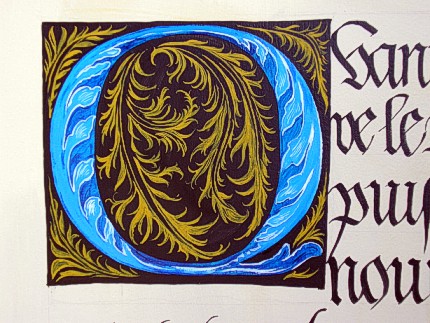 Quan
ve les
puis
nou